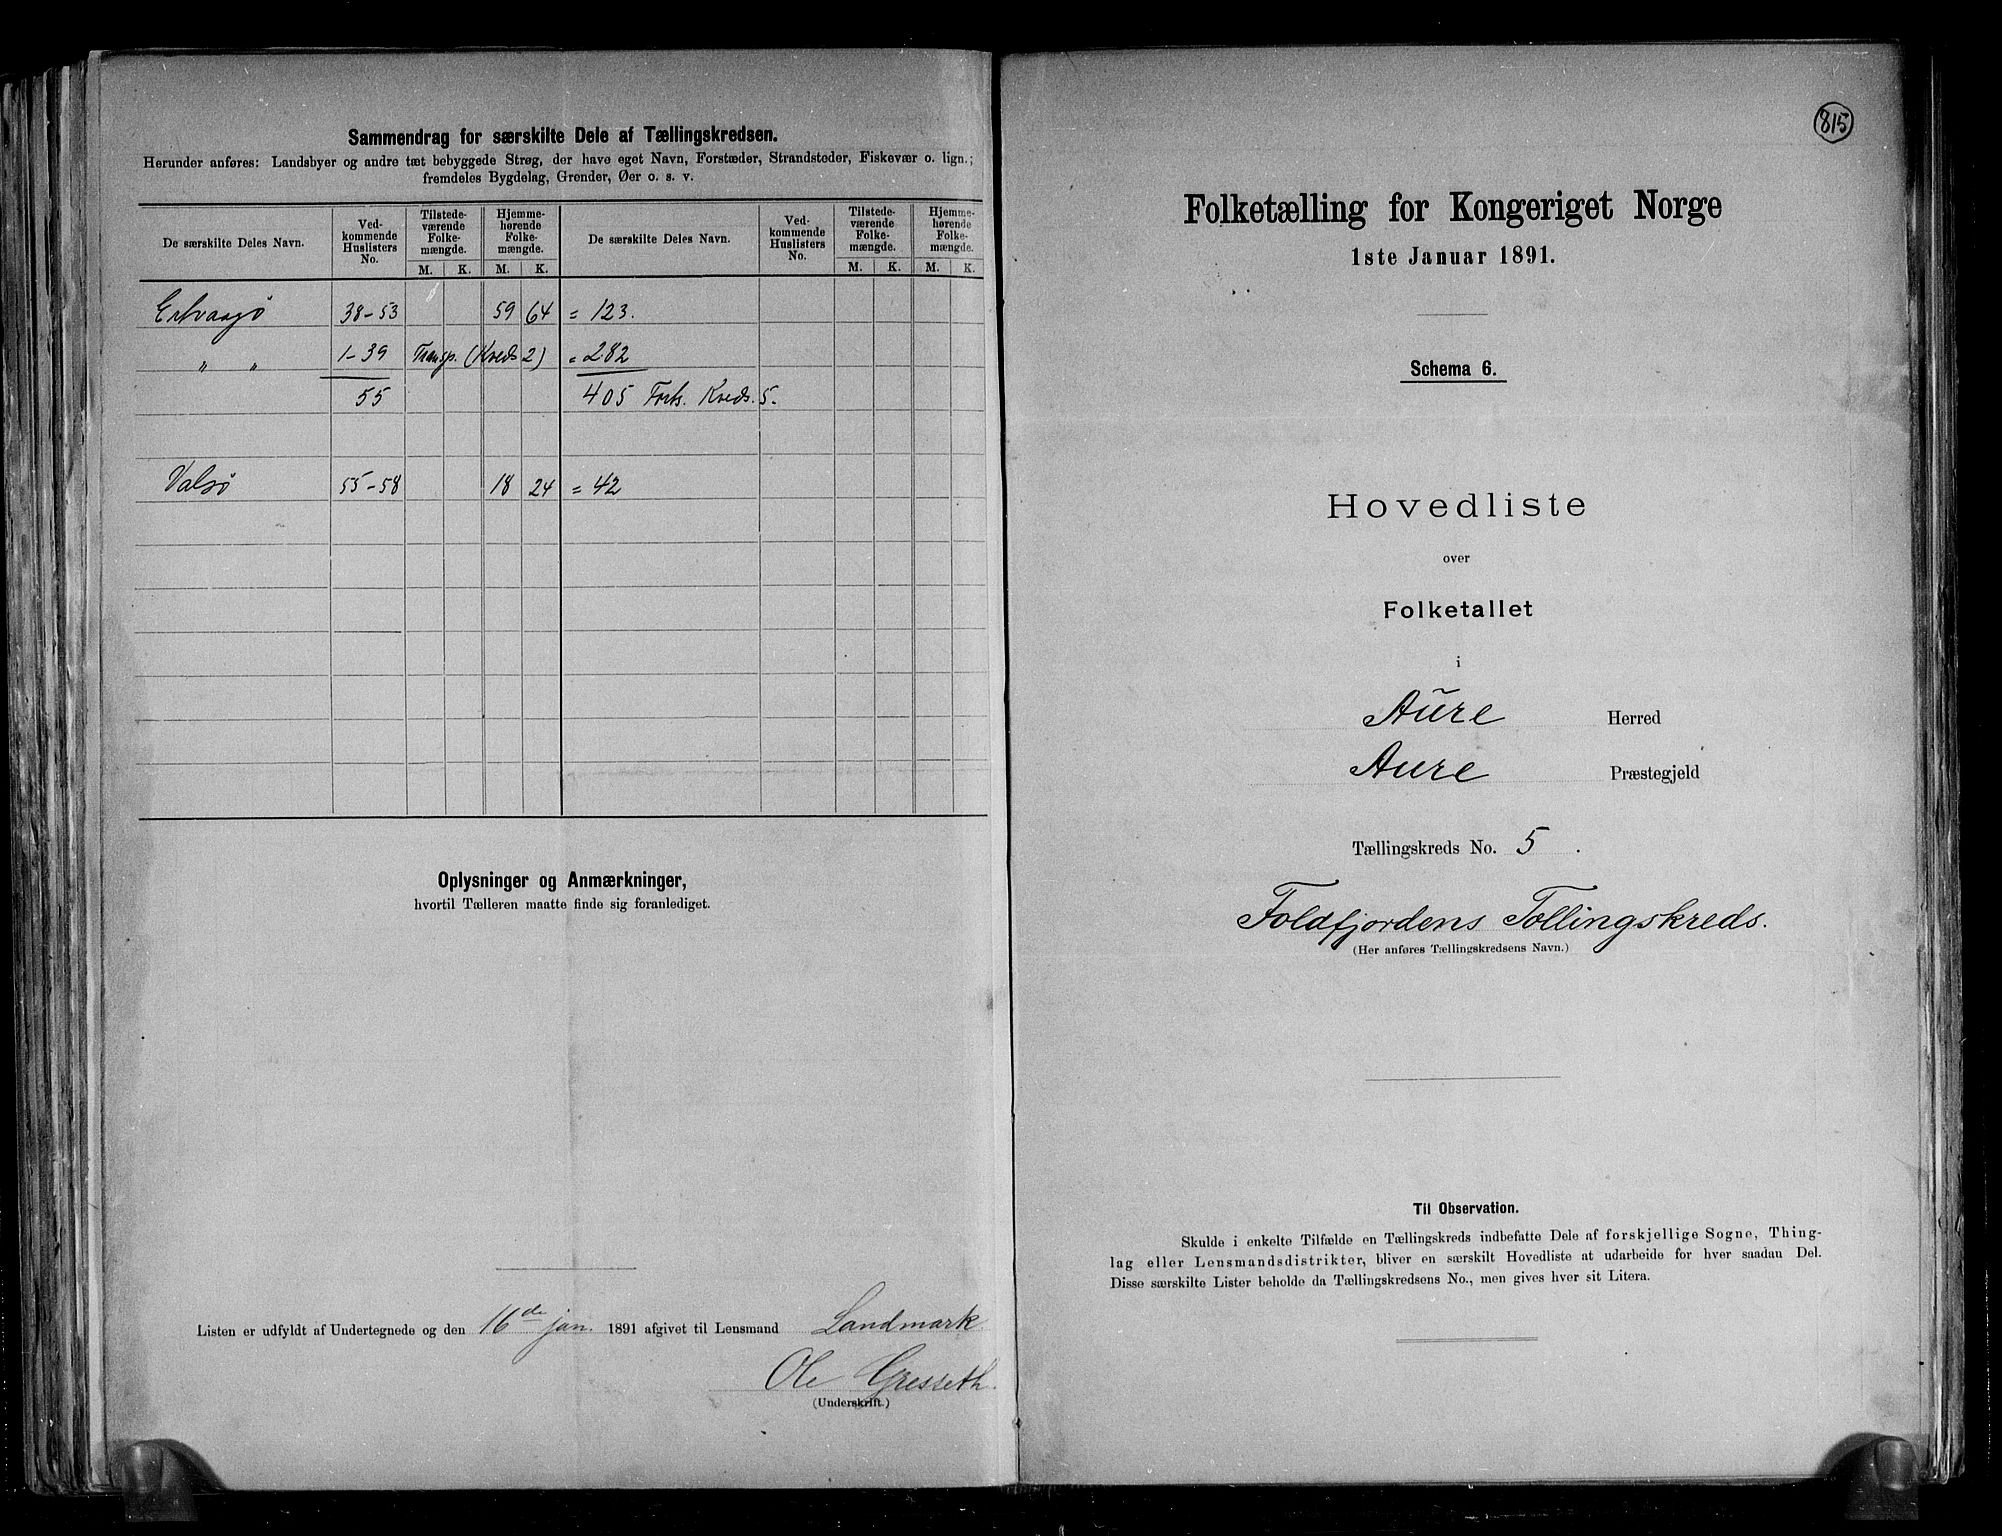 Sammendrag for særskilte Dele af Tællingskredsen.
Herunder anføres: Landsbyer og andre tæt bebyggede Strøg, der have eget Navn, Forstæder, Strandsteder, Fiskevær o. lign.;
fremdeles Bygdelag, Grender, Øer o. s. v.
De særskilte Deles Navn. Ved-kommende Huslisters No. Tilstede-værende Folke-mængde. Hjemme-hørende Folke-mængde. De særskilte Deles Navn. Ved-kommende Huslisters No. Tilstede-værende Folke-mængde. Hjemme-hørende Folke-mængde.
M. K. M. K. M. K. M. K.
Ertvaagø 38-53 59 64 = 123.
" " 1-39 Transp. (Kreds 2) = 282
55 405 Forts. Kreds. 5.
Valsø 55-58 18 24 = 42
Oplysninger og Anmærkninger,
hvortil Tælleren maatte finde sig foranlediget.
Listen er udfyldt af Undertegnede og den 16de jan. 1891 afgivet til Lensmand Landmark
Ole Gresseth.
(Underskrift.)
815
Folketælling for Kongeriget Norge
1ste Januar 1891.
Schema 6.
Hovedliste
over
Folketallet
i
Aure Herred
Aure Præstegjeld
Tællingskreds No. 5.
Foldfjordens Tællingskreds.
(Her anføres Tællingskredsens Navn.)
Til Observation.
Skulde i enkelte Tilfælde en Tællingskreds indbefatte Dele af forskjellige Sogne, Thing-
lag eller Lensmandsdistrikter, bliver en særskilt Hovedliste at udarbeide for hver saadan Del.
Disse særskilte Lister beholde da Tællingskredsens No., men gives hver sit Litera.